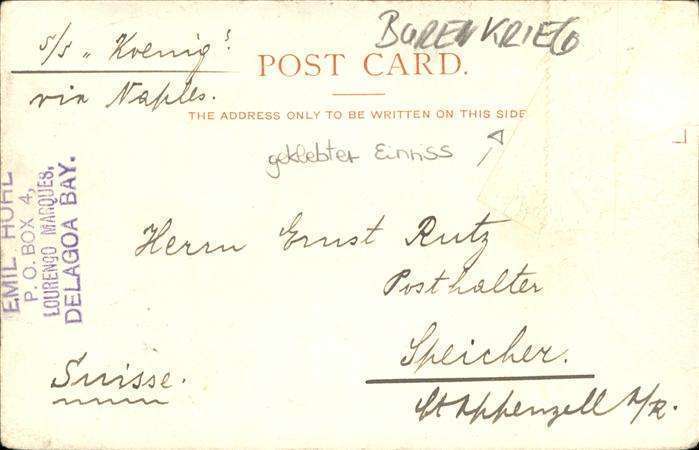 S/S "Koenig"
BURENKRIEG
via Naples.
POST CARD.
THE ADDRESS ONLY TO BE WRITTEN ON THIS SIDE
geklebter Einriss
EMIL HOHL
P.O. BOX 4,
LOURENÇO MARQUES,
DELAGOA BAY.
Herrn Ernst Rutz
Posthalter
Speicher.
Suisse.
Ct Appenzell A/R.